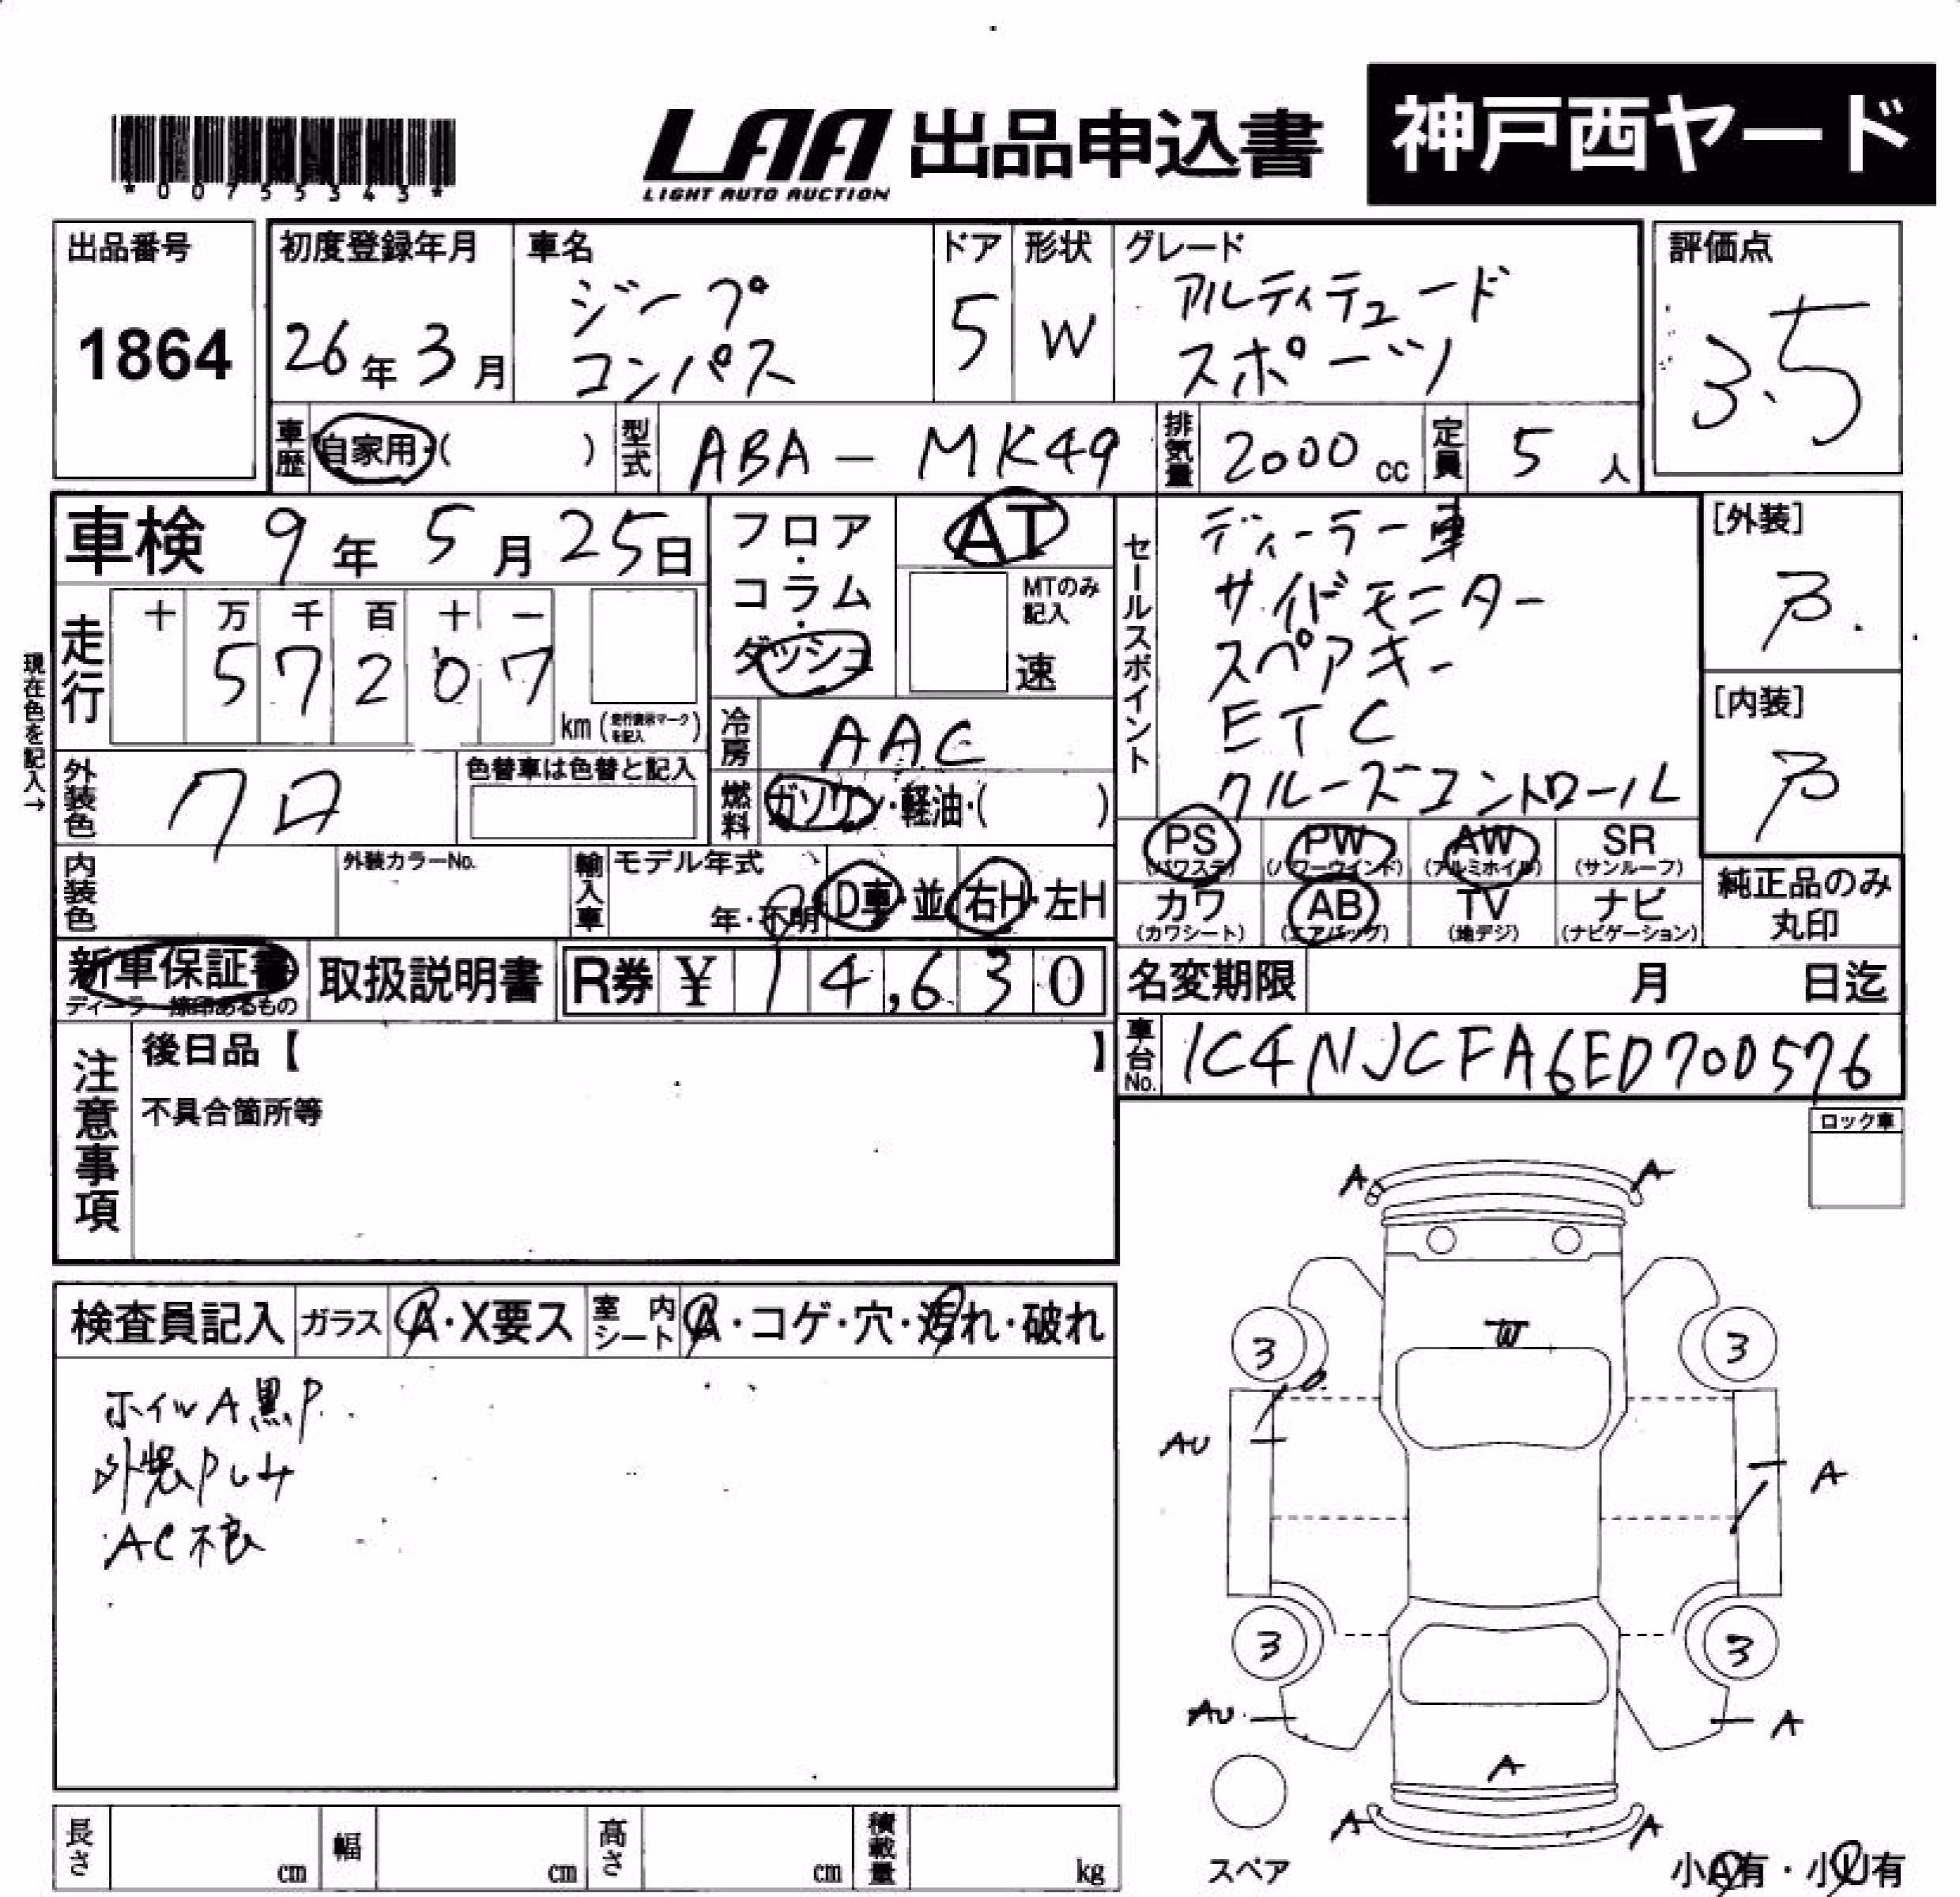 *00755343*
LAA 出品申込書 神戸西ヤード
LIGHT AUTO AUCTION
出品番号
1864
初度登録年月
26年3月
車名
ジープ
コンパス
ドア
5
形状
W
グレード
アルティテュード
スポーツ
評価点
3.5
車歴 自家用・( )
型式 ABA-MK49
排気量 2000cc
定員 5人
車検 9年5月25日
現在色を記入→
走行
十 万 千 百 十 一
5 7 2 0 7
km (走行表示マークを記入)
フロア・コラム・ダッシュ
AT
MTのみ記入
速
冷房 AAC
燃料 ガソリン・軽油・( )
セールスポイント
ディーラー車
サイドモニター
スペアキー
ETC
クルーズコントロール
[外装]
B.
[内装]
B
外装色 クロ
色替車は色替と記入
内装色
外装カラーNo.
輸入車
モデル年式
年・不明
D車・並
右H・左H
PS (パワステ)
PW (パワーウインド)
AW (アルミホイル)
SR (サンルーフ)
カワ (カワシート)
AB (エアバッグ)
TV (地デジ)
ナビ (ナビゲーション)
純正品のみ丸印
新車保証書
ディーラー捺印あるもの
取扱説明書
R券 ¥14,630
名変期限 月 日迄
車台No. 1C4NJCFA6ED700576
注意事項
後日品【 】
不具合箇所等
ロック車
検査員記入
ガラス A・X要ス
室内シート A・コゲ・穴・汚れ・破れ
ホイルA黒P
外装Pしみ
AC不良
A A
W
3 3
AU A
3 3
AU A
A
A A
スペア
小A有・小U有
長さ cm
幅 cm
高さ cm
積載量 kg